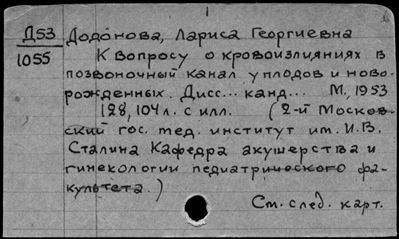 Д53 Додонова, Лариса Георгиевна
1055 К вопросу о кровоизлияниях в
позвоночный канал у плодов и ново-
рожденных. Дисс... канд... М, 1953
128, 104 л. с илл. (2-й Москов-
ский гос. мед. институт им. И.В.
Сталина Кафедра акушерства и
гинекологии педиатрического фа-
культета.)
См. след. карт.